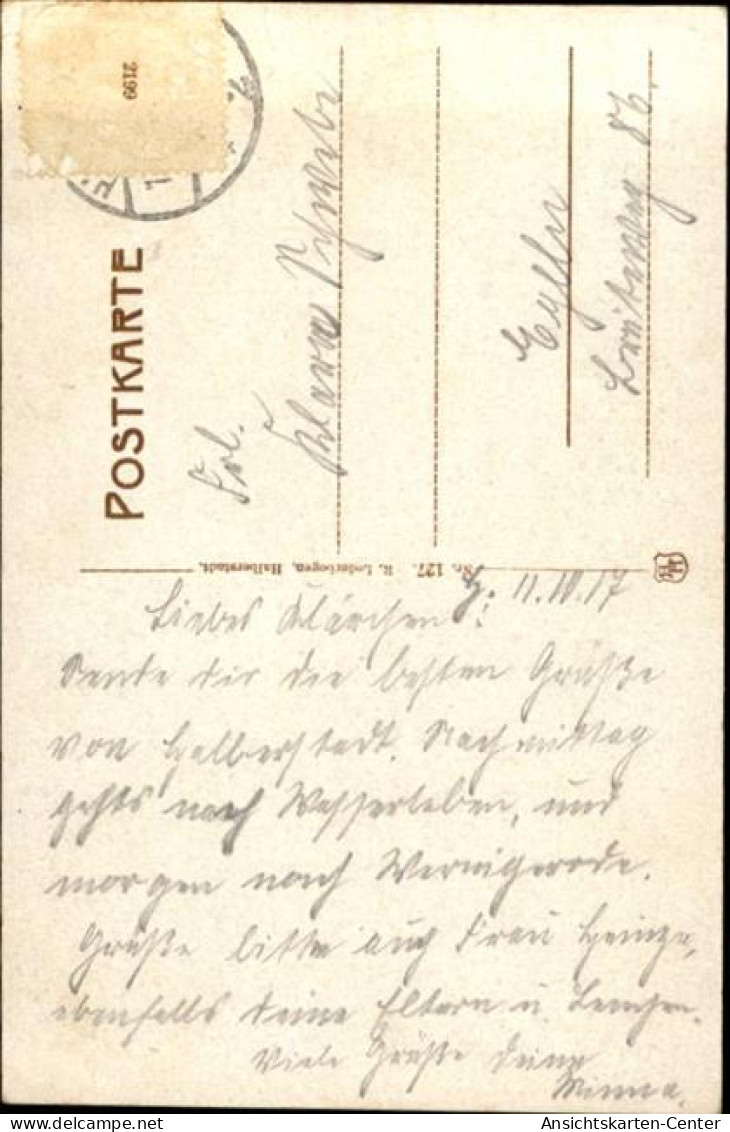 2199
POSTKARTE
Frl.
Klara Schwebe
Breiteweg 86.
Nr. 127. R. Lederbogen, Halberstadt.
H. 11.10.17
Liebes Klärchen!
Sende dir die besten Grüße
von Halberstadt. Nachmittag
gehts nach Wasserleben, und
morgen nach Wernigerode.
Grüße bitte auch Frau Heinze,
ebenfalls deine Eltern u.
Viele Grüße deine
Minna.
Ansichtskarten-Center